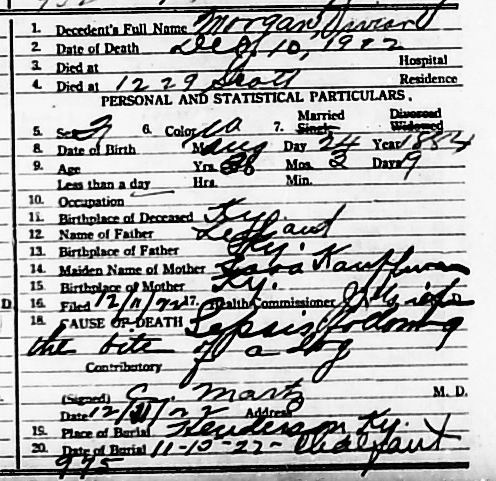 1. Decedent's Full Name Morgan Vivian
2. Date of Death Dec 10, 1922
3. Died at Hospital
4. Died at 1229 Scott Residence
PERSONAL AND STATISTICAL PARTICULARS.
5. Sex F 6. Color W 7. Married Single Divorced Widowed
8. Date of Birth Mo Aug Day 24 Year 1884
9. Age Yrs. 38 Mos. 3 Days 9
Less than a day Hrs. Min.
10. Occupation
11. Birthplace of Deceased Ky.
12. Name of Father
13. Birthplace of Father Ky.
14. Maiden Name of Mother Kauffman
15. Birthplace of Mother Ky.
16. Filed 12/11/22 17. Health Commissioner
18. CAUSE OF DEATH Sepsis following
the bite of a dog
Contributory
(Signed) Martz M. D.
Date 12/11/22 Address
19. Place of Burial Henderson Ky.
20. Date of Burial 11-13-22- Chalfant
975